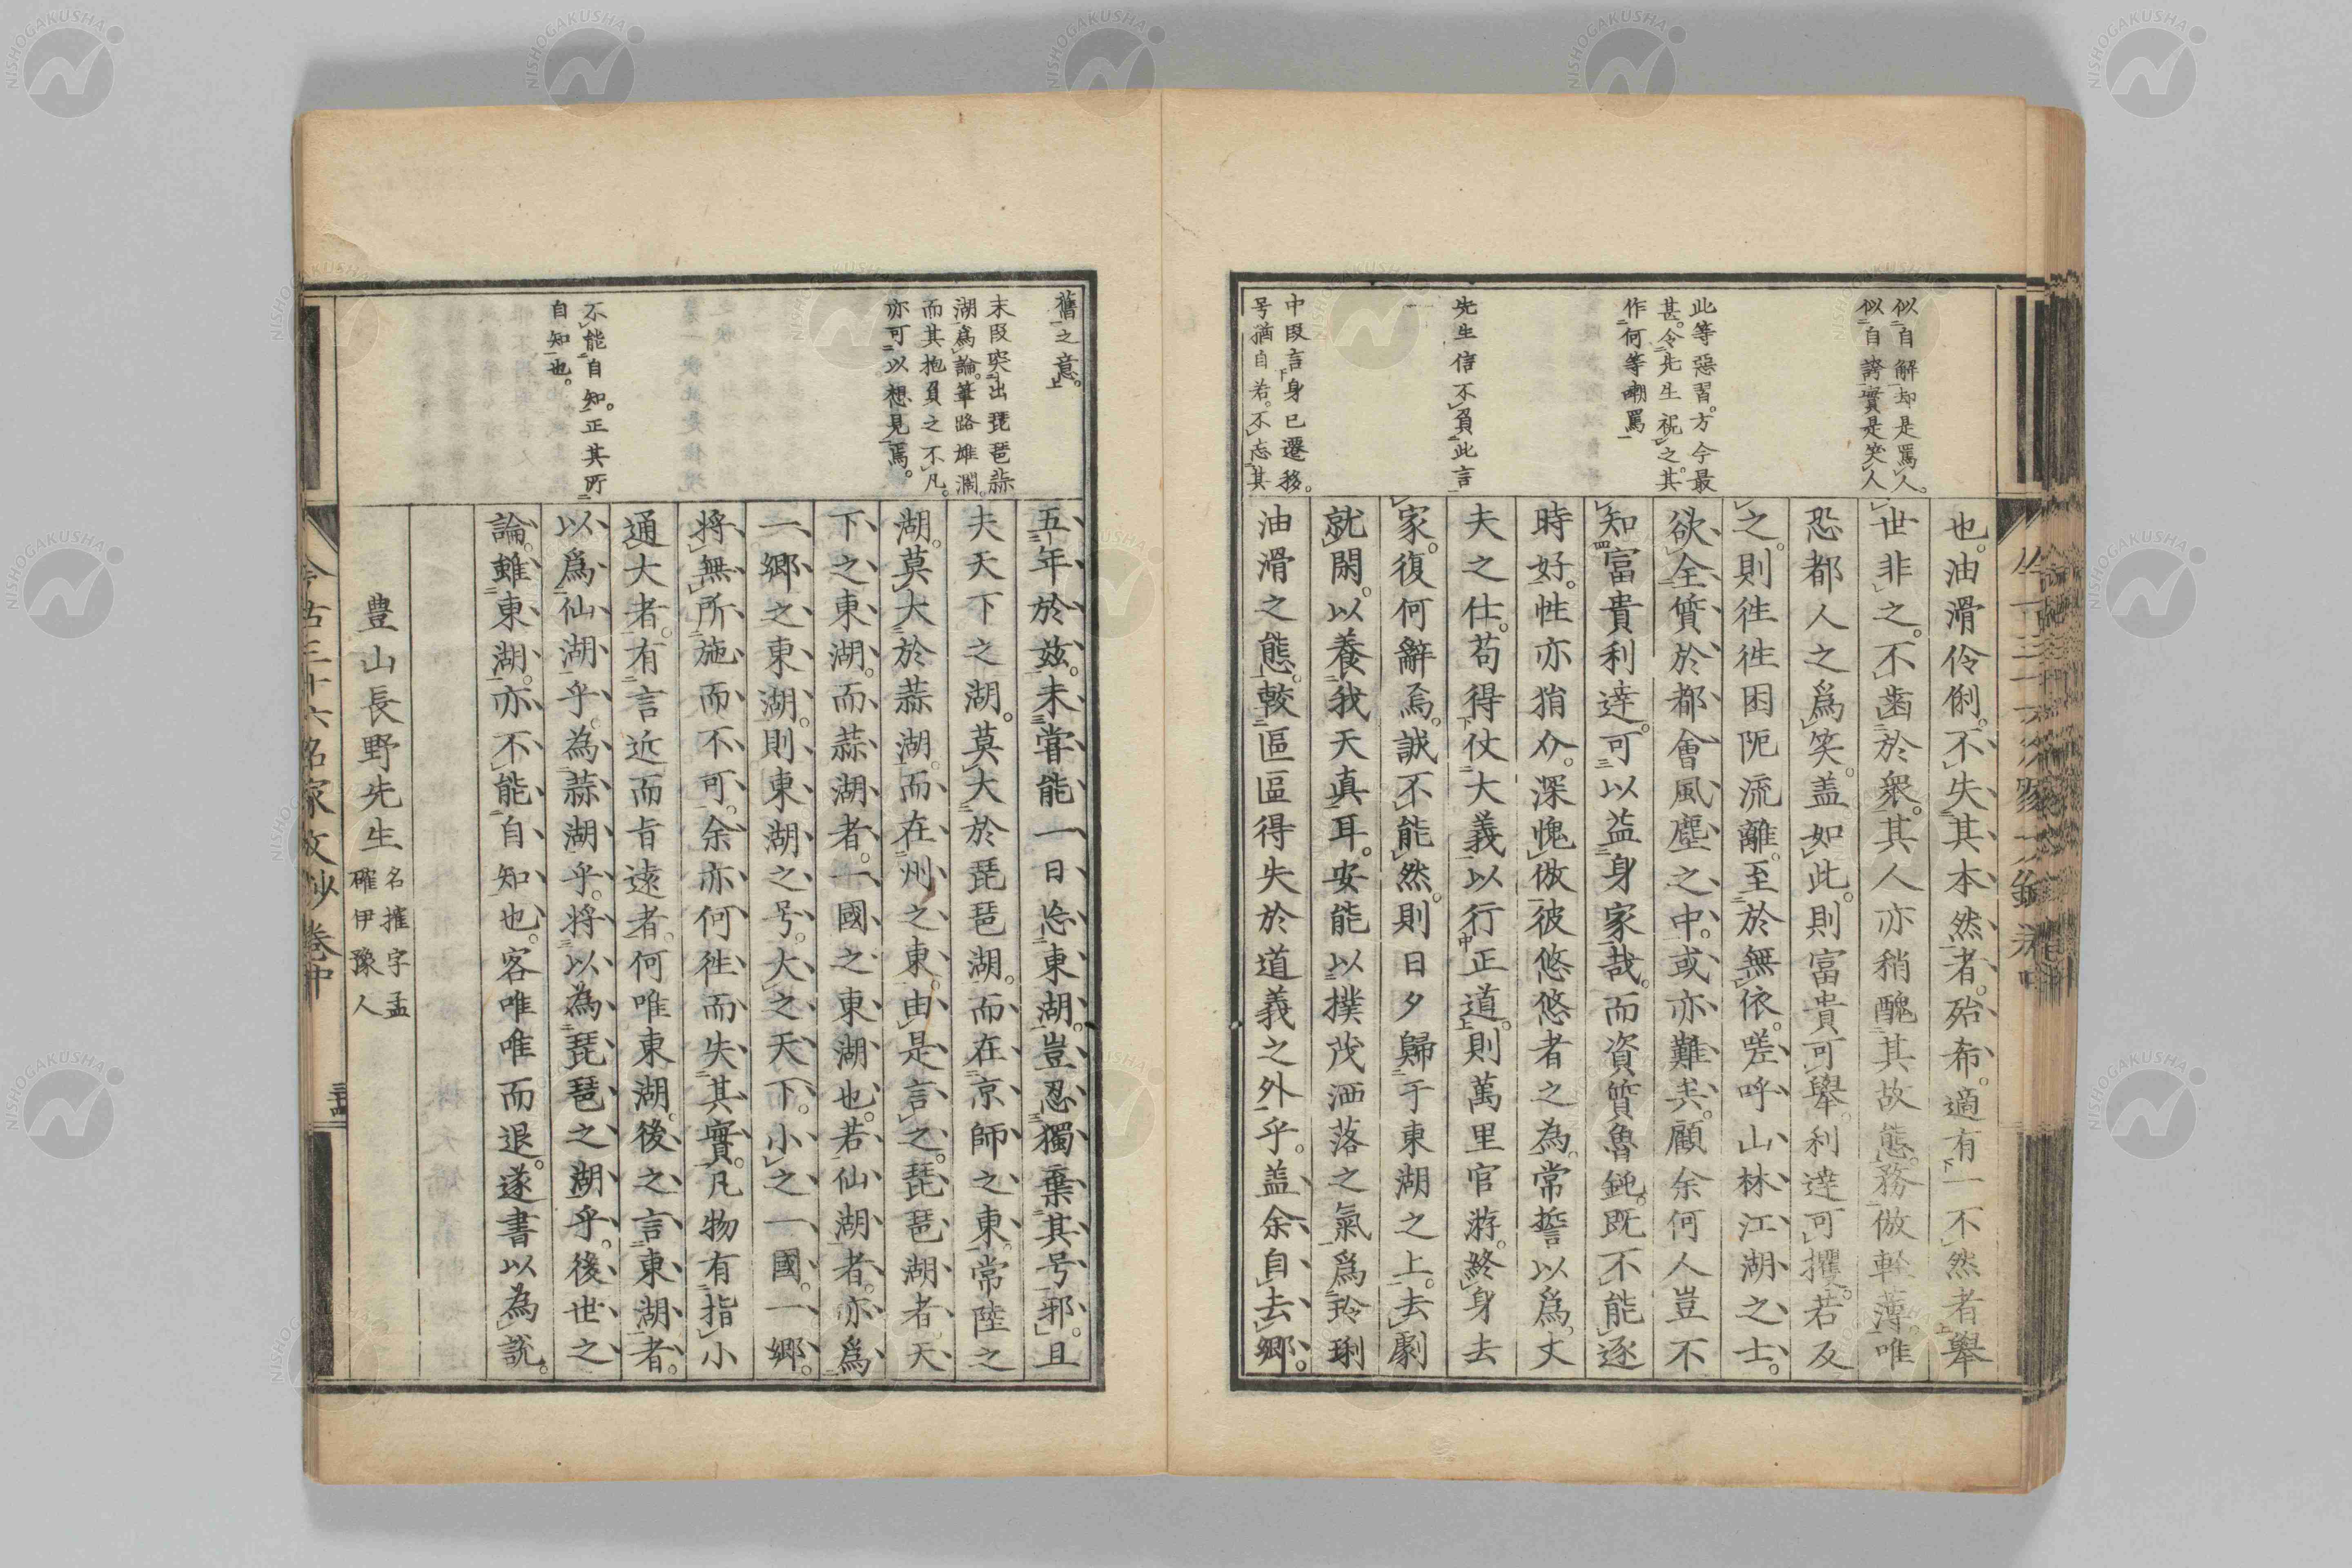 似自解却是罵人。
似自誇實是笑人
此等惡習。方今最
甚。令先生祝之。其
作何等嘲罵
先生信不負此言
中段言身已遷移。
号猶自若。不忘其
也。油滑伶俐。不失其本然者。殆希。適有一不然者舉
世非之。不齒於衆。其人亦稍醜其故態。務倣輕薄。唯
恐都人之爲笑。盖如此。則富貴可舉。利達可攫。若反
之。則徃徃困阨流離。至於無依。嗟呼山林江湖之士。
欲全質於都會風塵之中。或亦難矣。顧余何人豈不
知富貴利達。可以益身家哉。而資質魯鈍。既不能逐
時好。性亦狷介。深愧倣彼悠悠者之為。常誓以爲。丈
夫之仕。苟得仗大義以行正道。則萬里官游。終身去
家。復何辭焉。誠不能然。則日夕歸于東湖之上。去劇
就閑。以養我天真耳。安能以撲茂洒落之氣爲玲琍
油滑之態。較區區得失於道義之外乎。盖余自去郷。
舊之意。
末段突出琵琶蒜
湖爲論。筆路雄濶。
而其抱負之不凡。
亦可以想見焉。
不能自知。正其所
自知也。
五年於兹。未嘗能一日忘東湖。豈忍獨棄其号邪。且
夫天下之湖。莫大於琵琶湖。而在京師之東。常陸之
湖。莫大於蒜湖。而在州之東。由是言之。琵琶湖者。天
下之東湖。而蒜湖者。一國之東湖也。若仙湖者。亦爲
一郷之東湖。則東湖之号。大之天下。小之一國。一郷。
将無所施而不可。余亦何徃而失其實。凡物有指小
通大者。有言近而旨遠者。何唯東湖。後之言東湖者。
以爲仙湖乎。為蒜湖乎。将以為琵琶之湖乎。後世之
論。雖東湖。亦不能自知也。客唯唯而退。遂書以為說。
豊山長野先生
名摧字孟
確伊豫人
今古三十六名家文抄卷中